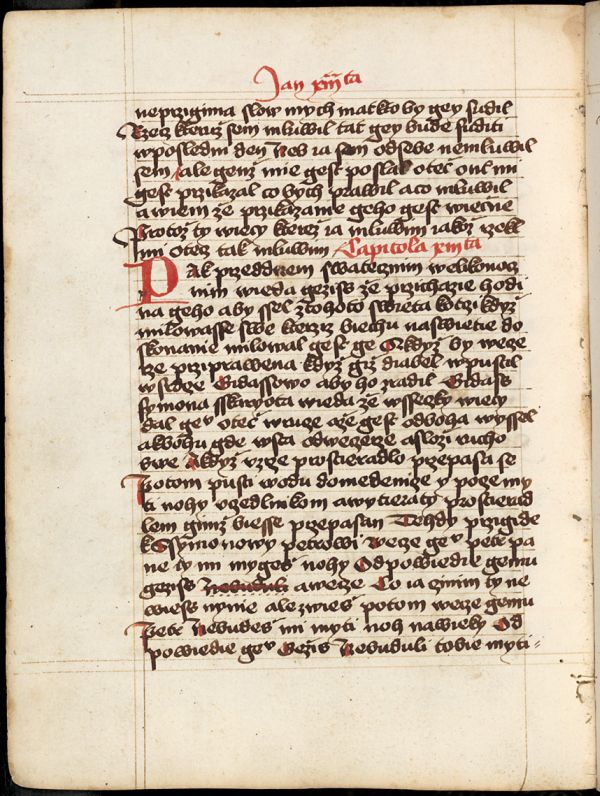 Jan xiiita
neprzigima slow mych mat kto by gey sudil
Rzecz kteruz sem mluwil tat gey bude suditi
w posledni den Neb ia sem od sebe nemluwil
sem ale genz mie gest poslal otec on mi
gest przikazal co bych prawil a co mluwil
a wiem ze przikazanie geho gest wiecne
Protoz ty wiecy kterez ia mluwim iakoz rzekl
mi otecz tak mluwim Capitola xiiita
PAk przed dnem swatecznim welikonocz
nim wieda geziss ze przichazie hodi
na geho aby ssel z tohoto swieta k otci kdyz
milowasse swe kterziz biechu na swietie do
skonanie milowal gest ge A kdyz by wecze
rze prziprawena kdyz giz diabel wpustil
w srdcze Gidassowo aby ho zradil Gidass
symona sskaryota wieda ze wsseczky wiecy
dal gey otec w rucze a ze gest od boha wyssel
a k bohu gde wsta od weczerze a slozi rucho
swe A kdyz wze prostieradlo przepasa se
Potom pusti wodu do medenicze y pocze my
ti nohy vczedlnikom a wytierati prostierad
lem gimz biesse przepasan Tehdy przigide
k Ssymonowy petrowi Wecze gey petr pa
ne ty mi myges nohy Odpowiedie gemu
geziss Nebuduli a wecze Co ia czinim ty ne
wiess nynie ale zwies potom wecze gemu
Petr Nebudes mi myti noh na wieky Od
powiedie gey Gezis Nebuduli tobie myti